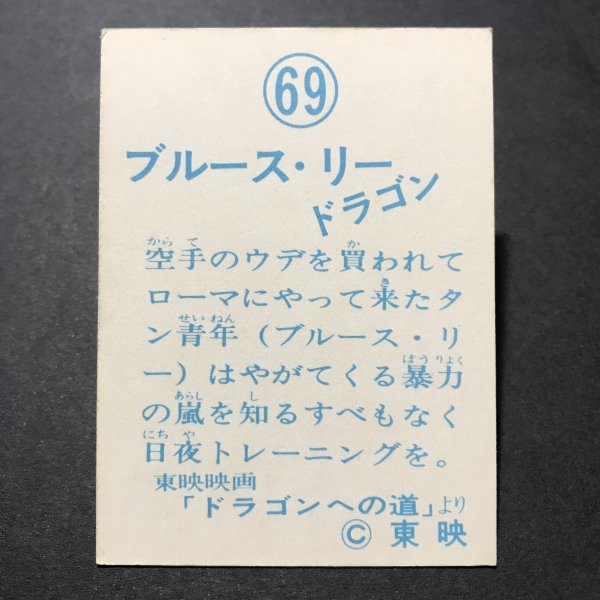 69
ブルース・リー
ドラゴン
空手のウデを買われて
ローマにやって来たタ
ン青年（ブルース・リ
ー）はやがてくる暴力
の嵐を知るすべもなく
日夜トレーニングを。
東映映画
「ドラゴンへの道」より
© 東映